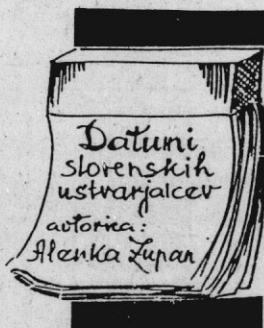 Datumi
slovenskih
ustvarjalcev
avtorica:
Alenka Zupan